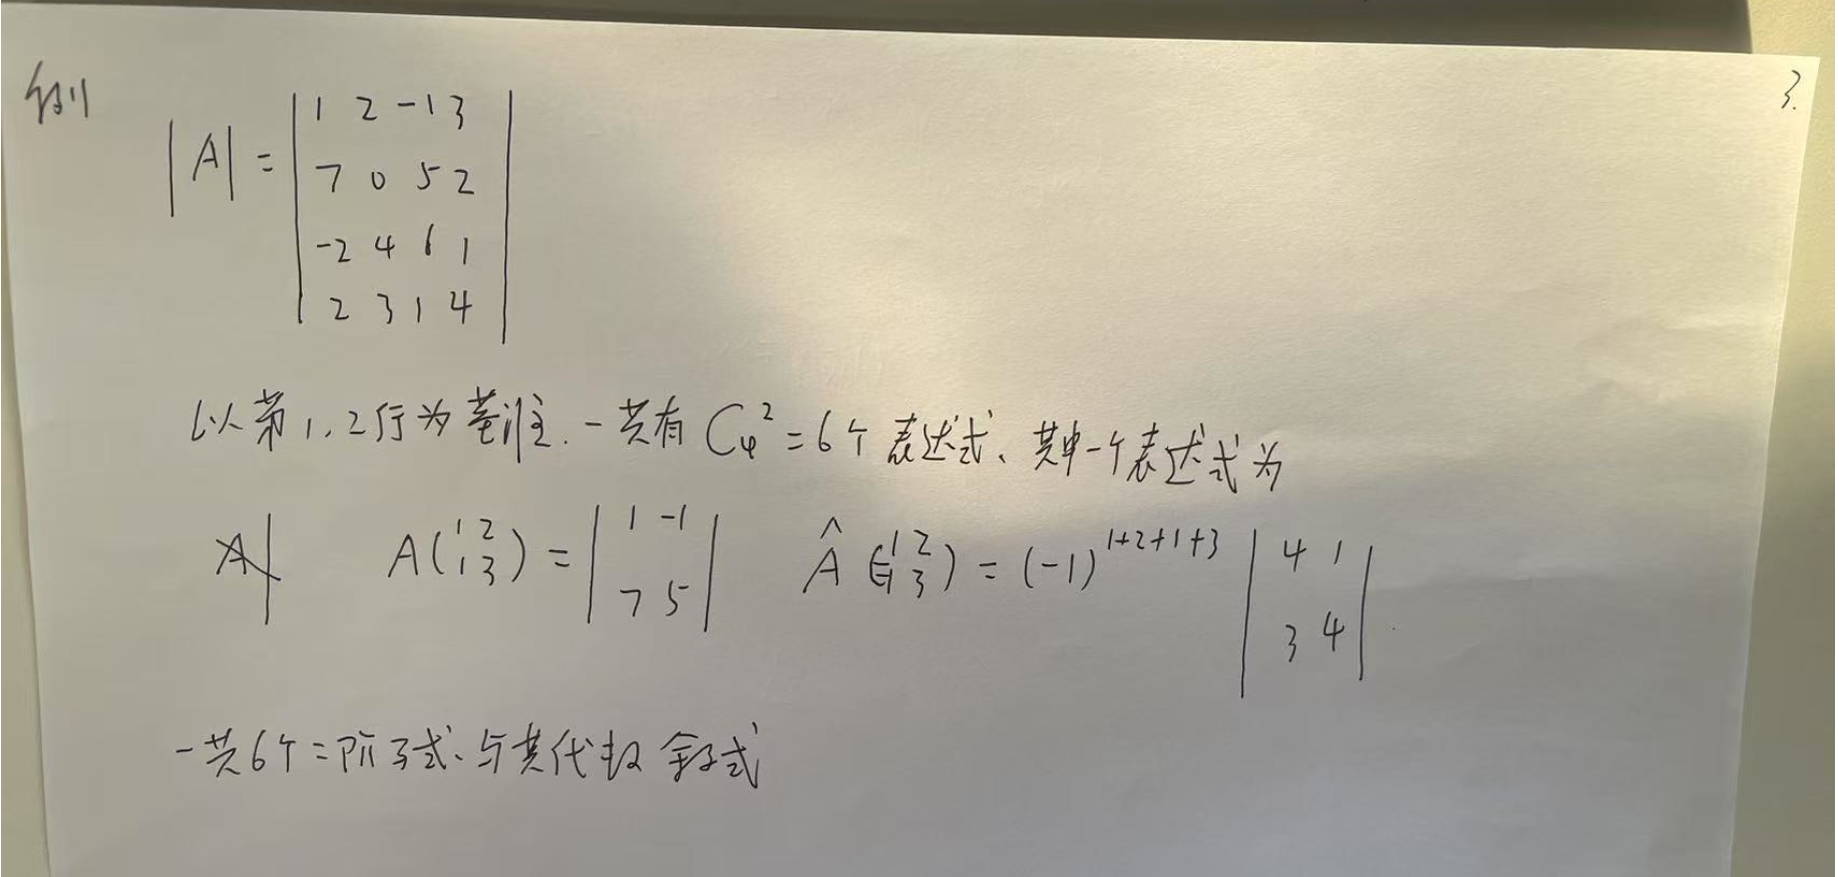 例
3.
|A| = | 1 2 -1 3 |
| 7 0 5 2 |
| -2 4 6 1 |
| 2 3 1 4 |
以第1,2行为基准.一共有 C₄² = 6个 表达式、其中一个表达式为
A(1 2 / 1 3) = | 1 -1 / 7 5 | Â(1 2 / 1 3) = (-1)^{1+2+1+3} | 4 1 / 3 4 |
一共6个二阶子式、与其代数余子式